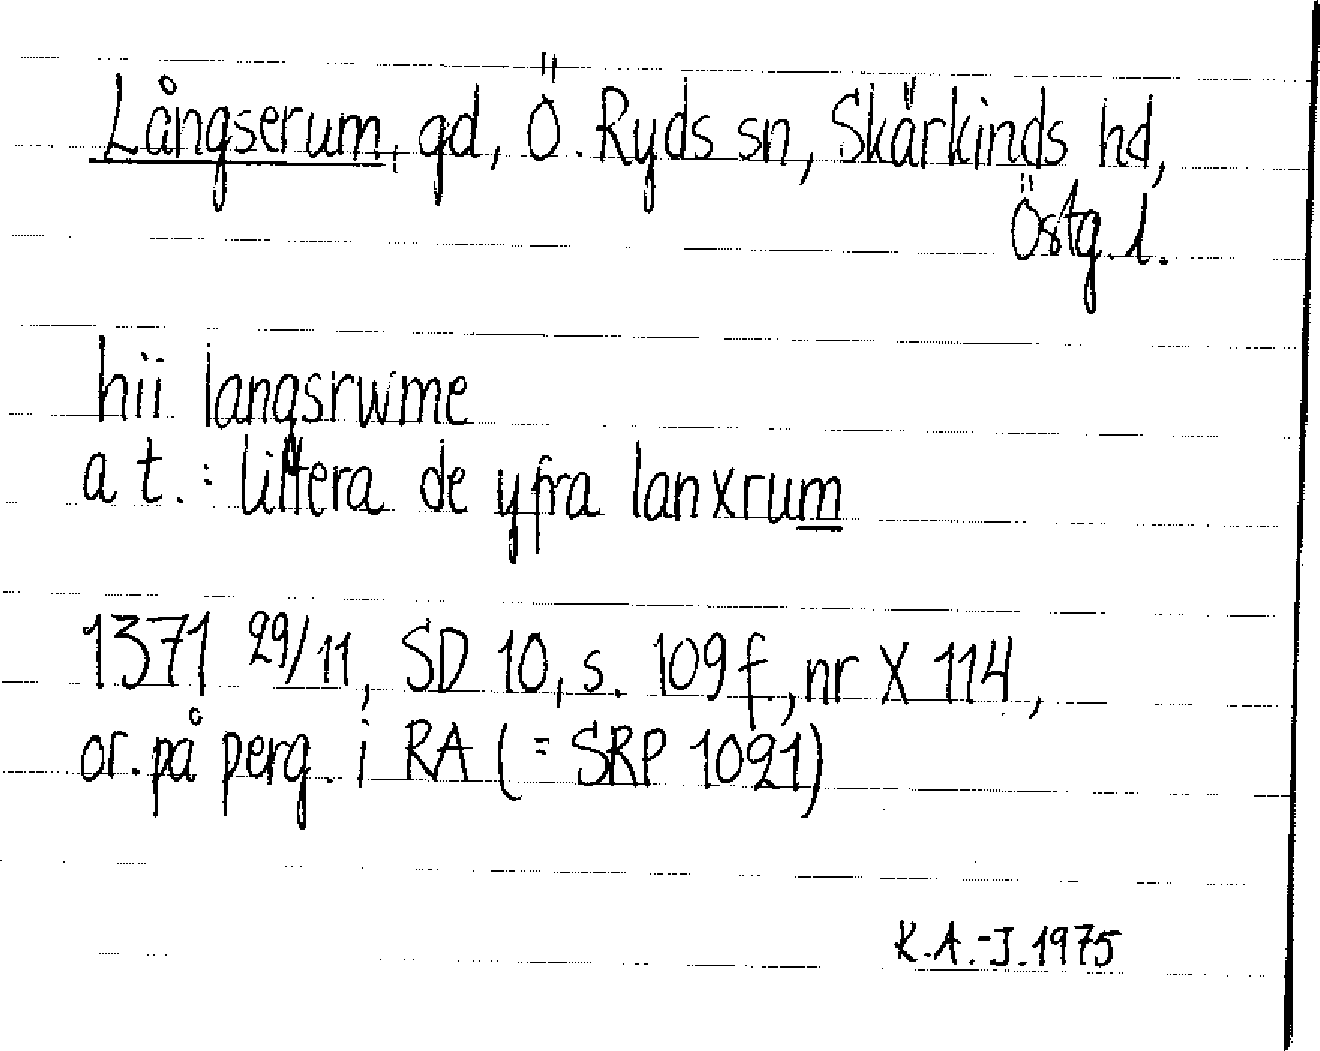 Långserum, gd, Ö. Ryds sn, Skärkinds hd,
Östg. l.
hii langsrwme
a t.: littera de yfra lanxrum
1371 29/11, SD 10, s. 109 f., nr X 114,
or. på perg. i RA (= SRP 1091)
K.A.-J. 1975